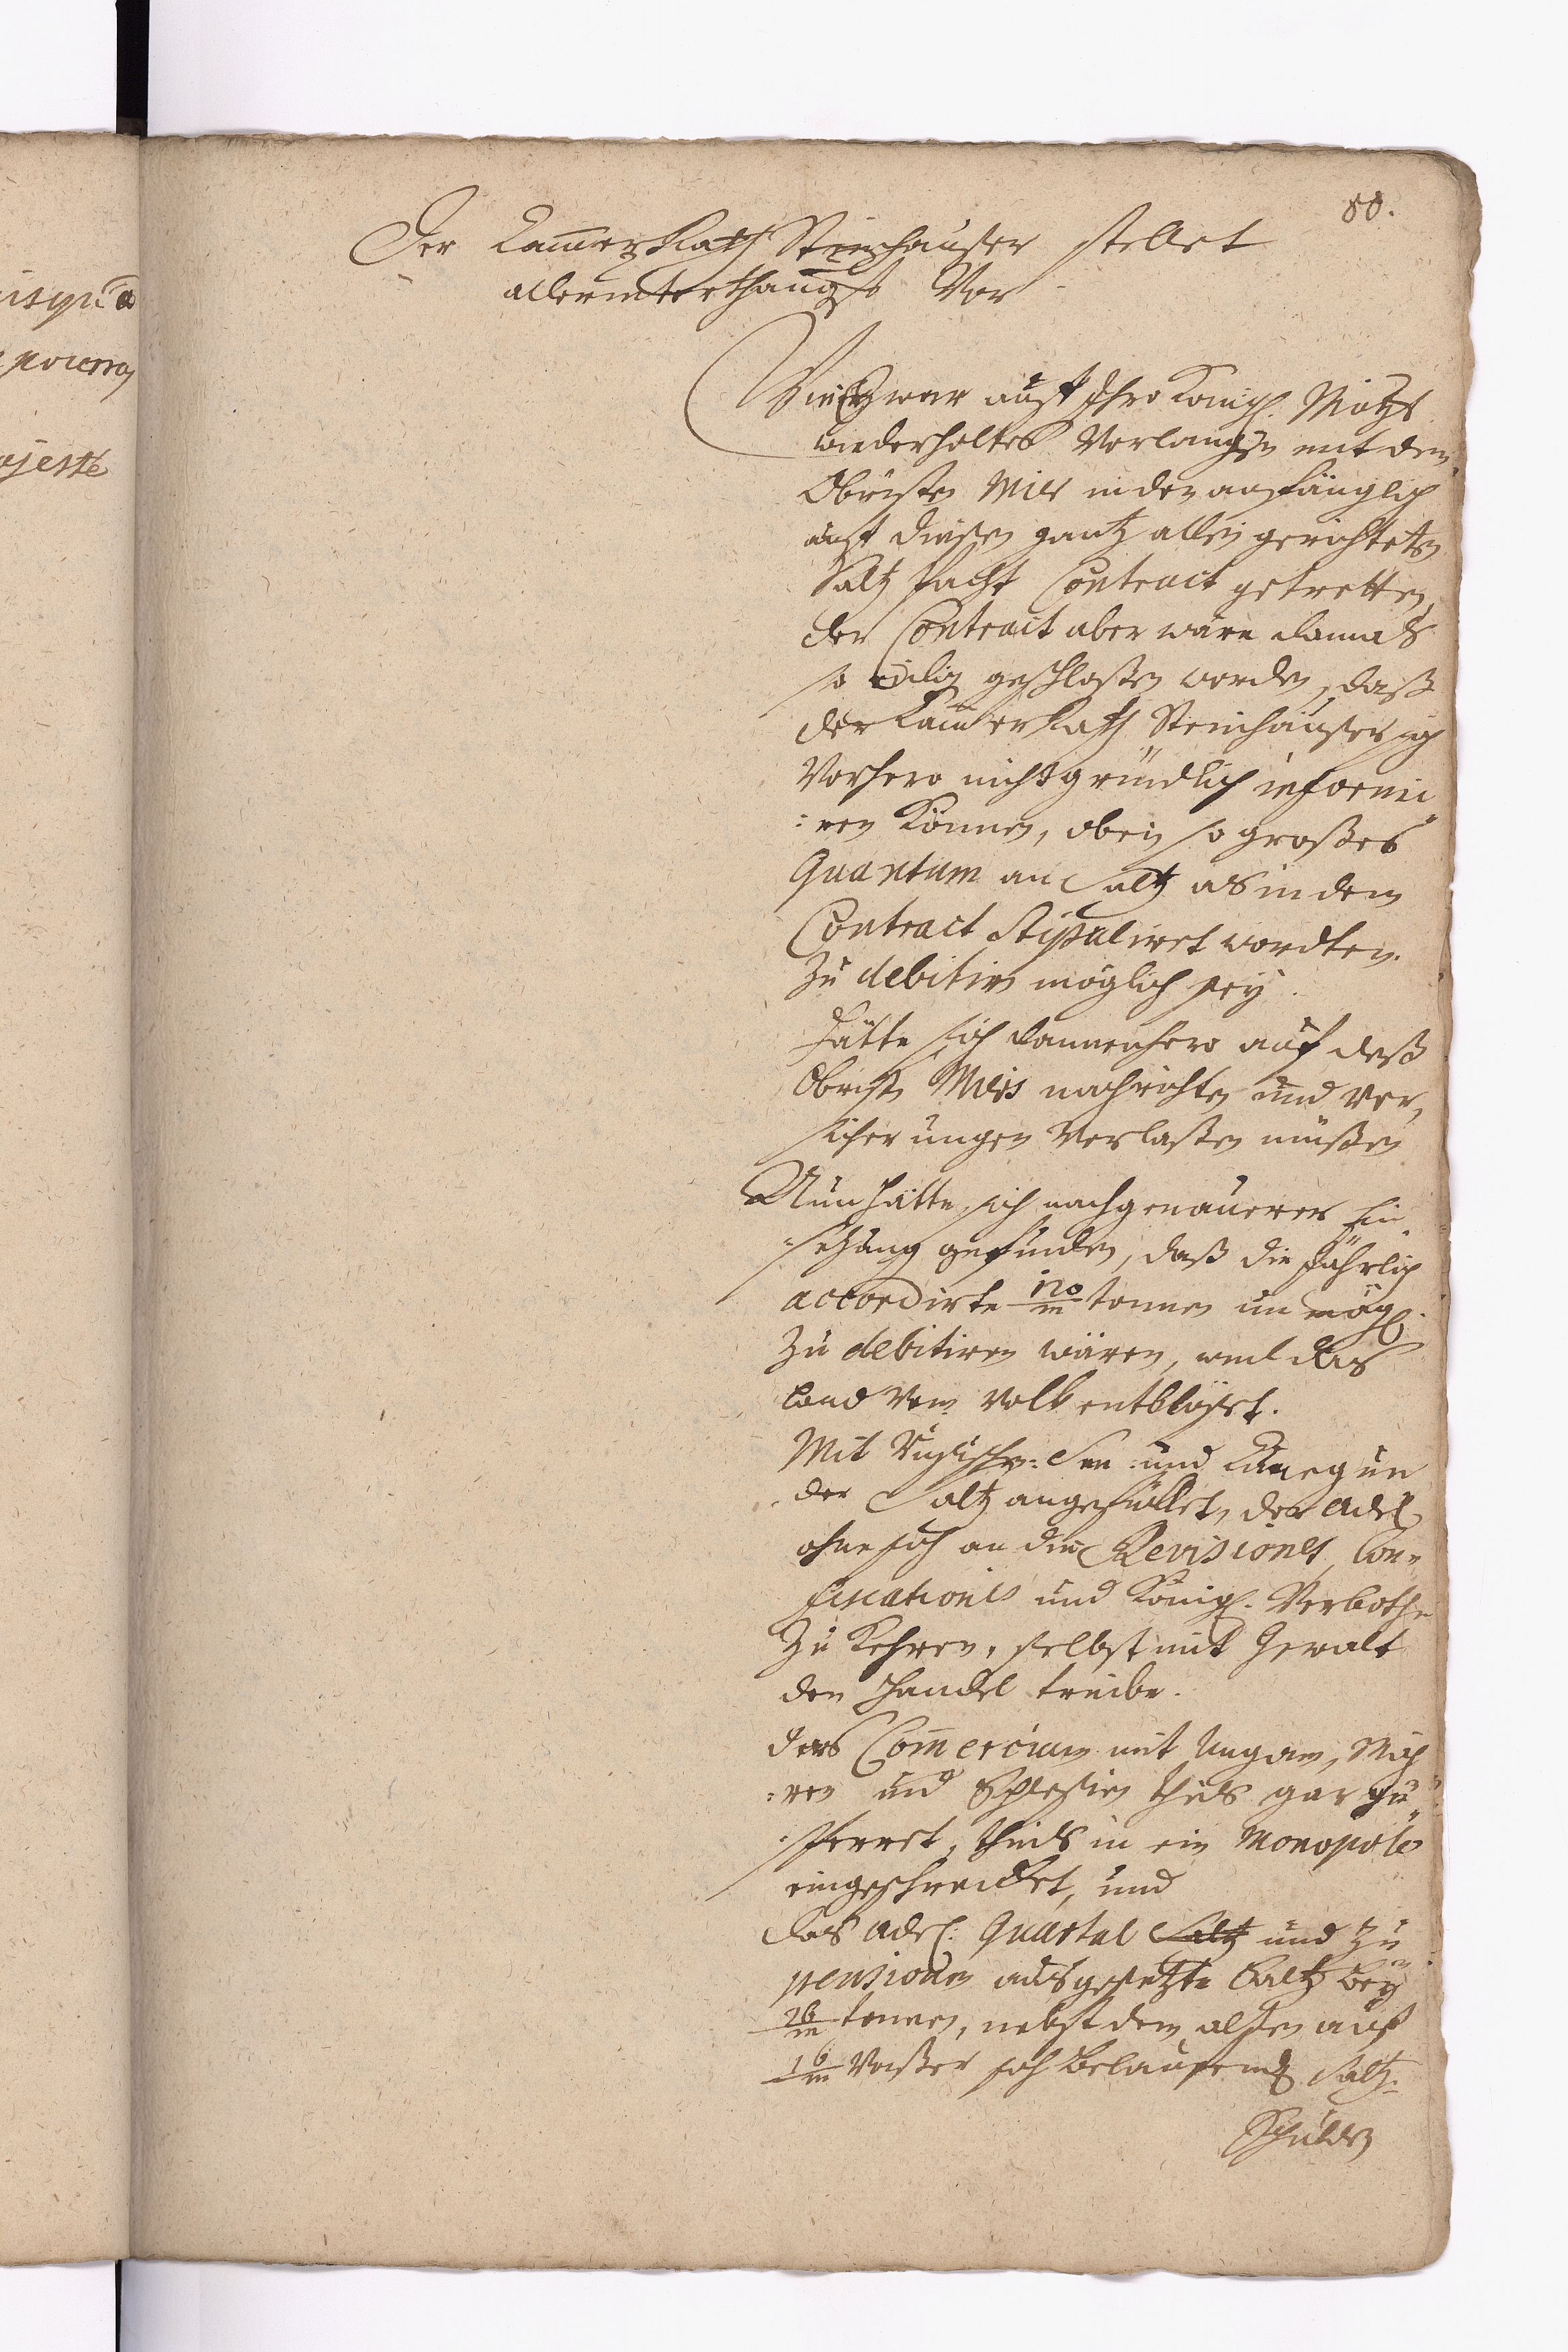 80.
Der Cammer Rath Steinhäußer stellet
allerunterthänigst Vor
Wie Er zwar auf Ihro Königl. Maytt
wiederholtes Verlangen mit dem
Obristen Mier in den anfänglich
auf diesen gantz allein gerichteten
Saltz Pacht Contract getretten,
der Contract aber wäre damals
so eilig geschloßen worden, daß
der Cammer Rath Steinhäußer sich
Vorhero nicht gründlich informi
:ren Können, ob ein so großes
Quantum an Saltz als in dem
Contract Stipuliret worden.
Zu debitiren möglich sey.
Hätte sich dannenhero auf deß
Obrist Miers nachrichten und Ver,
sicherungen Verlaßen müßen
Nun hätte sich nach genauerer Ein
:sehung gefunden, daß die Jährlich
accordirte 120/m tonnen un mögl.
Zu debitiren wären, weil das
Land Vom Volk entblößet.
Mit Rußischen: See: und
der Saltz angefüllet, der Adel
ohne sich an die Revisiones, Con„
fiscationes und Königl. Verbothe
Zu Kehren, selbst mit Gewalt
den Handel treibe.
das Commercium mit Ungarn, Mäh
:ren und Schlesien theils gar ge„
:sperret, theils in ein Monopole
eingeschrencket, und
das Adel: Quartal Saltz und Zu
pensionen ausgesetzte Saltz bey
26/m tonnen, nebst dem alten auf
16/m Vaßer sich belaufend Saltz.
Schulden
isqu'a
pourroy
ajesté